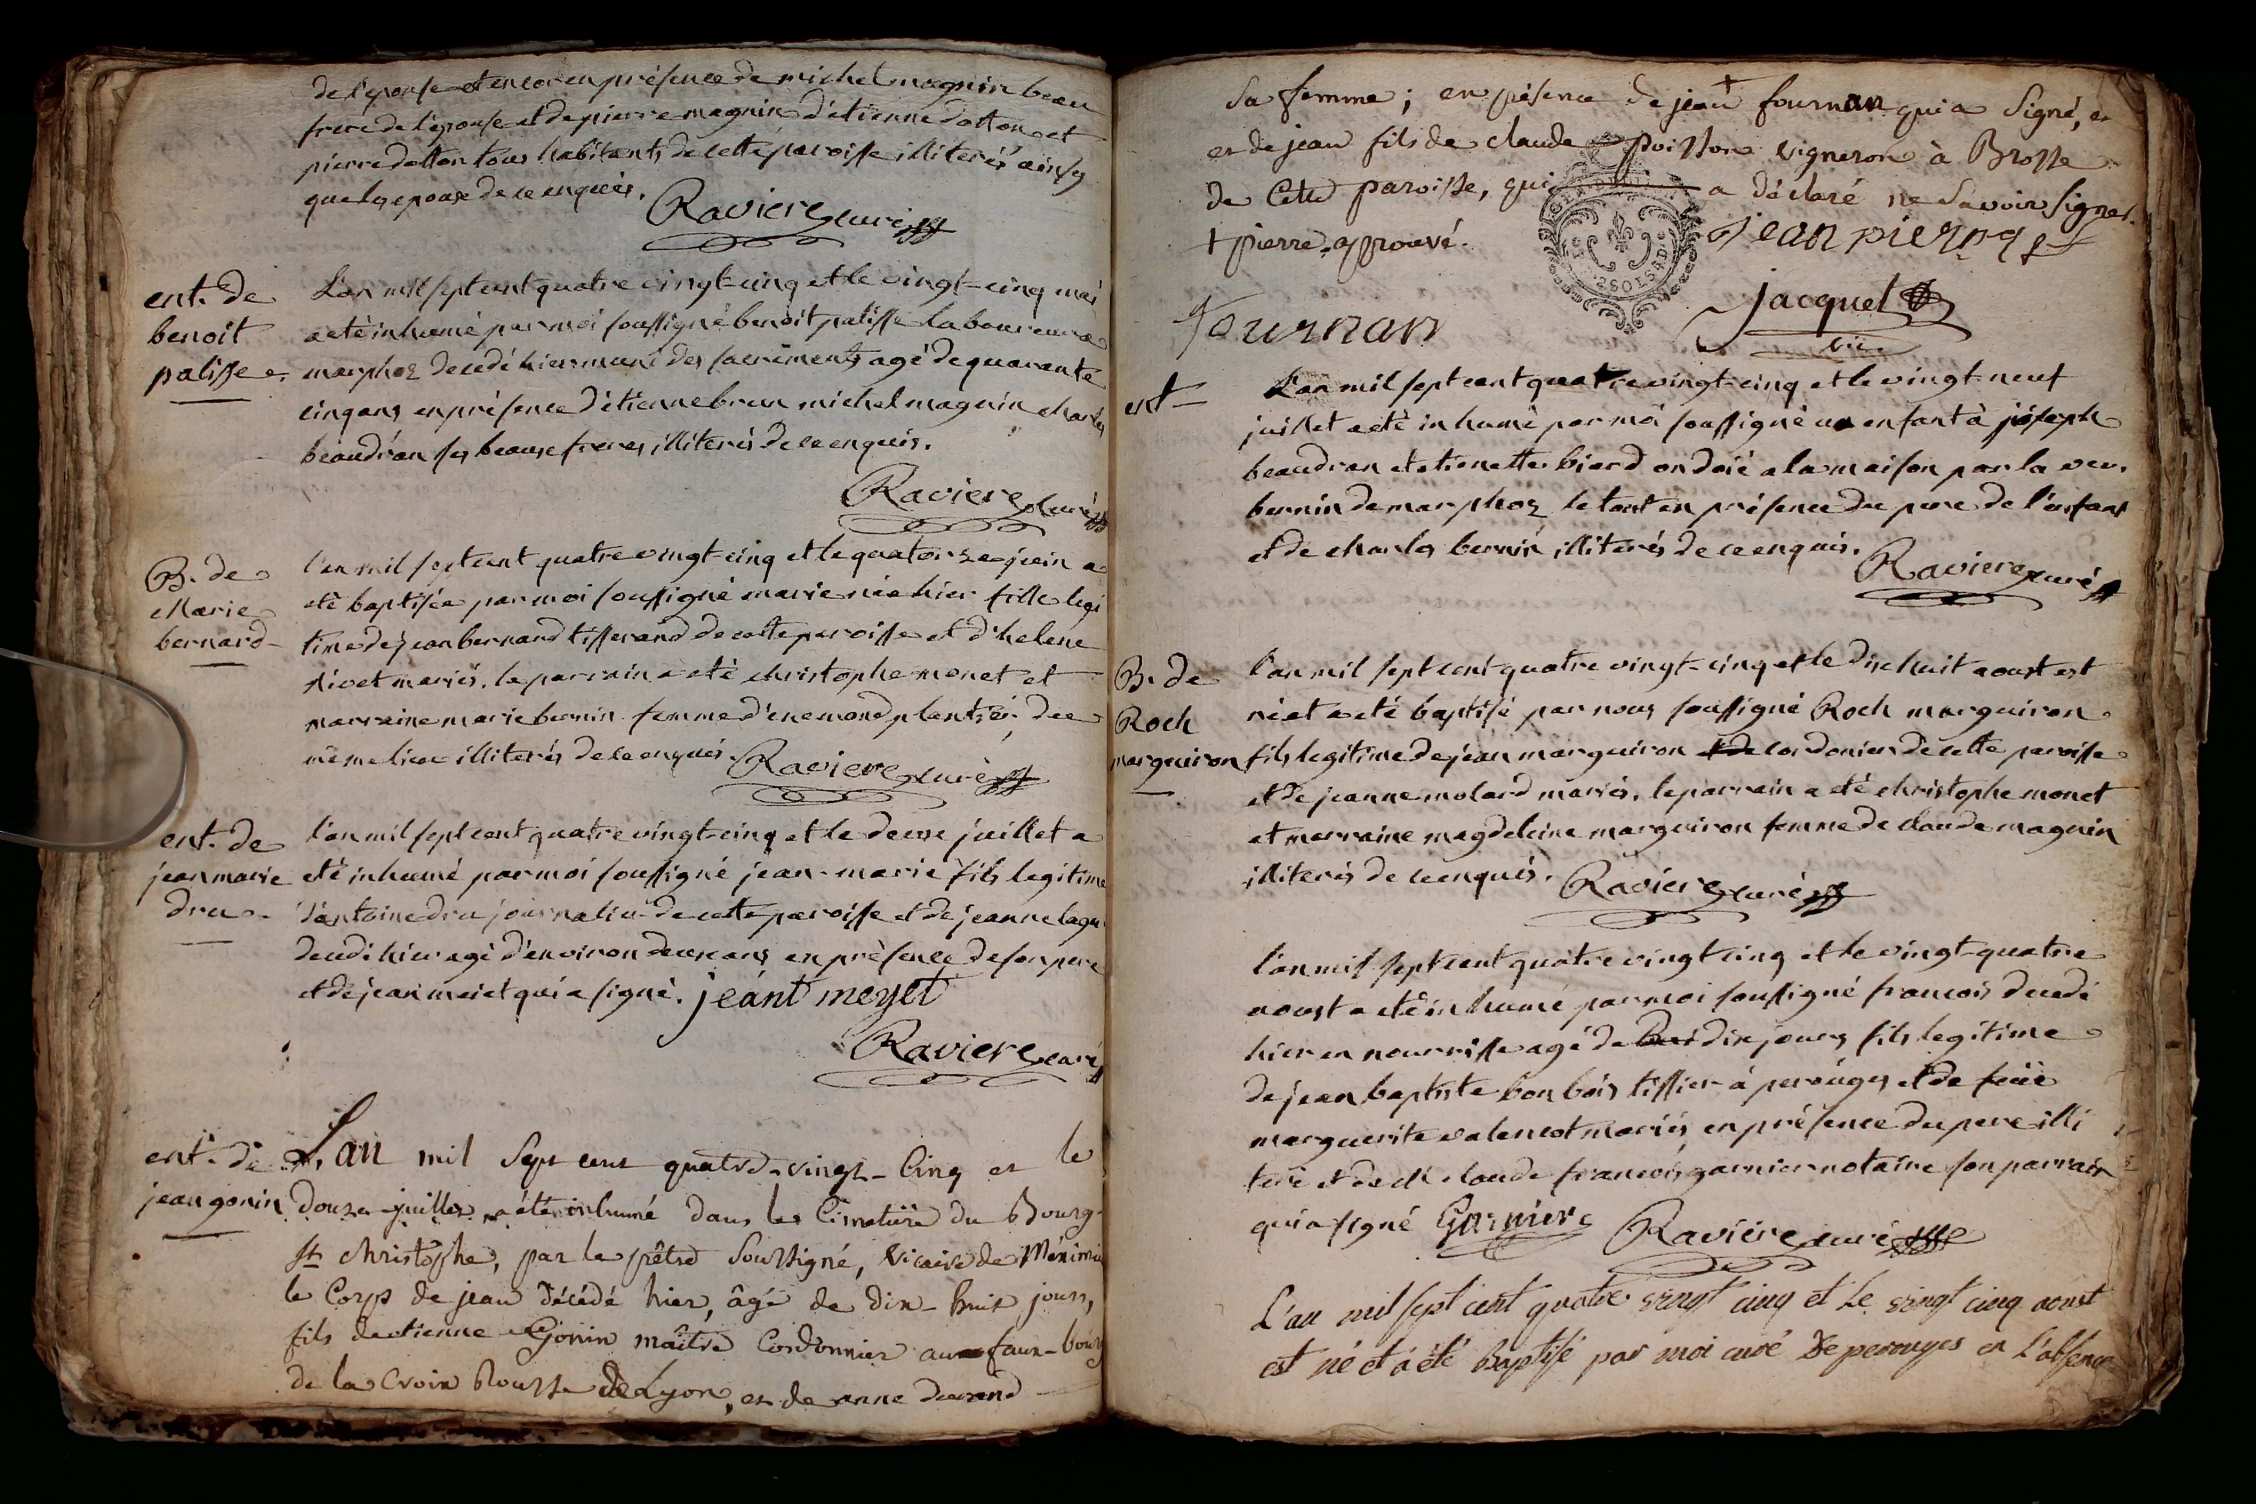 de l'epouse et encor en présence de michel magnin beau
frere de l'epouse et de pierre magnin d'étienne dotton et
pierre dotton tous habitants de cette paroisse illiterés ainsy
que les epoux de ce enquis.
Raviere curé
ent. de
benoit
palisse
L'an mil sept cent quatre vingt-cinq et le vingt-cinq mai
a eté inhumé par moi soussigné benoit palisse laboureur a
marphoz decedé hier muni des sacrements agé de quarante
cinq ans en présence d'étienne brun michel magnin charles
beaudran ses beaux freres illiterés de ce enquis.
Raviere curé
B. de
Marie
bernard
l'an mil sept cent quatre vingt-cinq et le quatorze juin a
eté baptisée par moi soussigné marie née hier fille legi
time de jean bernard tisserand de cette paroisse et d'helene
nivet mariés. le parrain a eté christophe monet et
marraine marie bernin femme d'enemond plantier du
même lieu illiterés de ce enquis.
Raviere curé
ent. de
jean marie
dru
l'an mil sept cent quatre vingt-cinq et le deux juillet a
eté inhumé par moi soussigné jean-marie fils legitime
d'antoine dru journalier de cette paroisse et de jeanne
decedé hier agé d'environ deux ans en présence de son pere
et de jean meiet qui a signé. jeant meyet
Raviere curé
ent. de
jean gonin
L'an mil sept cent quatre-vingt-cinq et le
douze juillet a été inhumé dans le Cimetiere du Bourg-
st christophe, par le prêtre soussigné, vicaire de Meximieu
le Corps de jean décédé hier, âgé de dix-huit jours,
fils de etienne Gonin maître Cordonnier au faux-bourg
de la croix Rousse de Lyon, et de anne durand
sa femme; en présence de jean + fournan qui a signé, et
et de jean fils de claude Poisson vigneron à Brosse
de Cette paroisse, qui a déclaré ne savoir signer.
+ pierre approuvé.
jean pierre
fournan
jacquet
vic.
ent
L'an mil sept cent quatre vingt-cinq et le vingt neuf
juillet a eté inhumé par moi soussigné un enfant à joseph
beaudran et etienette biard ondoié a la maison par la veuv.
bernin de marphoz le tout en présence du pere de l'enfant
et de charles bernin illiterés de ce enquis.
Raviere curé
B. de
Roch
marguiron
l'an mil sept cent quatre vingt-cinq et le dix huit aoust est
né et a eté baptisé par nous soussigné Roch marguiron
fils legitime de jean marguiron cordonier de cette paroisse
et de jeanne molard mariés. le parrain a eté christophe monet
et marraine magdeleine marguiron femme de claude magnin
illiterés de ce enquis.
Raviere curé
l'an mil sept cent quatre vingt cinq et le vingt-quatre
aoust a eté inhumé par moi soussigné francois decedé
hier en nourrisse agé de dix jours fils legitime
de jean baptiste bon bois tissier à perouges et de feüe
marguerite valencot mariés en présence du pere illi
teré et de claude francois garnier notaire son parrain
qui a signé Garnier
Raviere curé
L'an mil sept cent quatre vingt cinq et le vingt cinq aoust
est né et a été baptisé par moi curé de perouges en l'absence